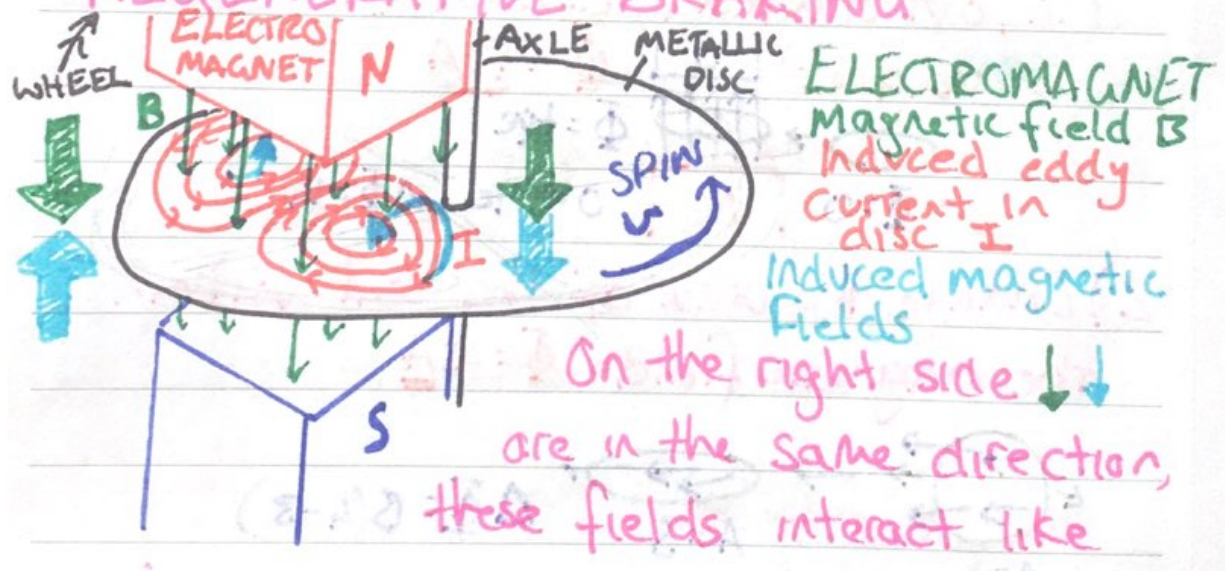 REGENERATIVE BRAKING
WHEEL
ELECTRO
MAGNET
N
AXLE
METALLIC
DISC
B
SPIN
v
I
S
ELECTROMAGNET
Magnetic field B
Induced eddy
current in
disc I
Induced magnetic
fields
On the right side ↓↓
are in the same direction,
these fields interact like